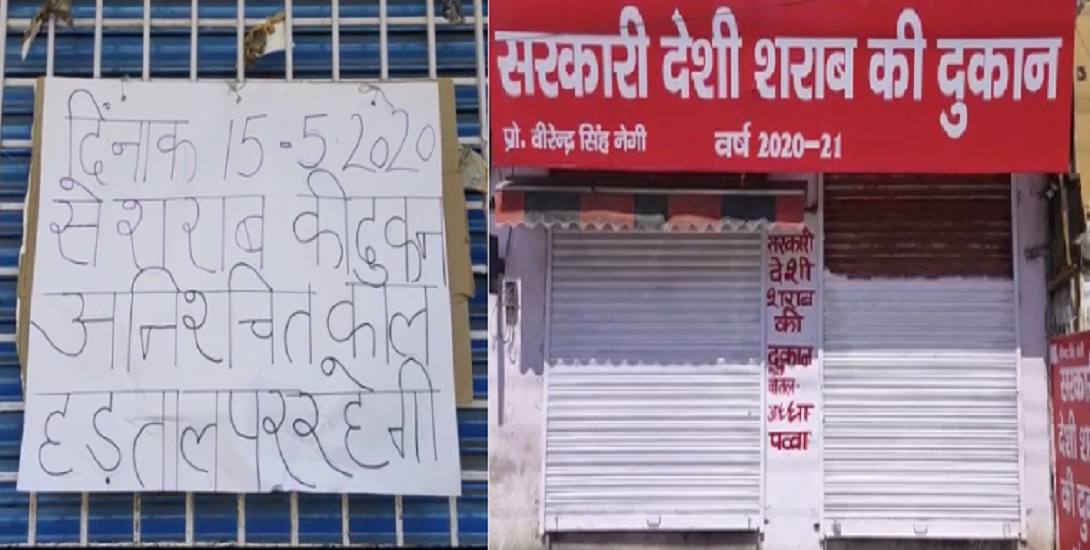 दिनाक 15-5-2020
से शराब की दुकान
अनिश्चित काल
हड़ताल पर रहेगी
सरकारी देशी शराब की दुकान
प्रो. वीरेन्द्र सिंह नेगी वर्ष 2020-21
सरकारी
देशी
शराब
की
दुकान
बोतल-
अध्धा
पव्वा
देशी
की